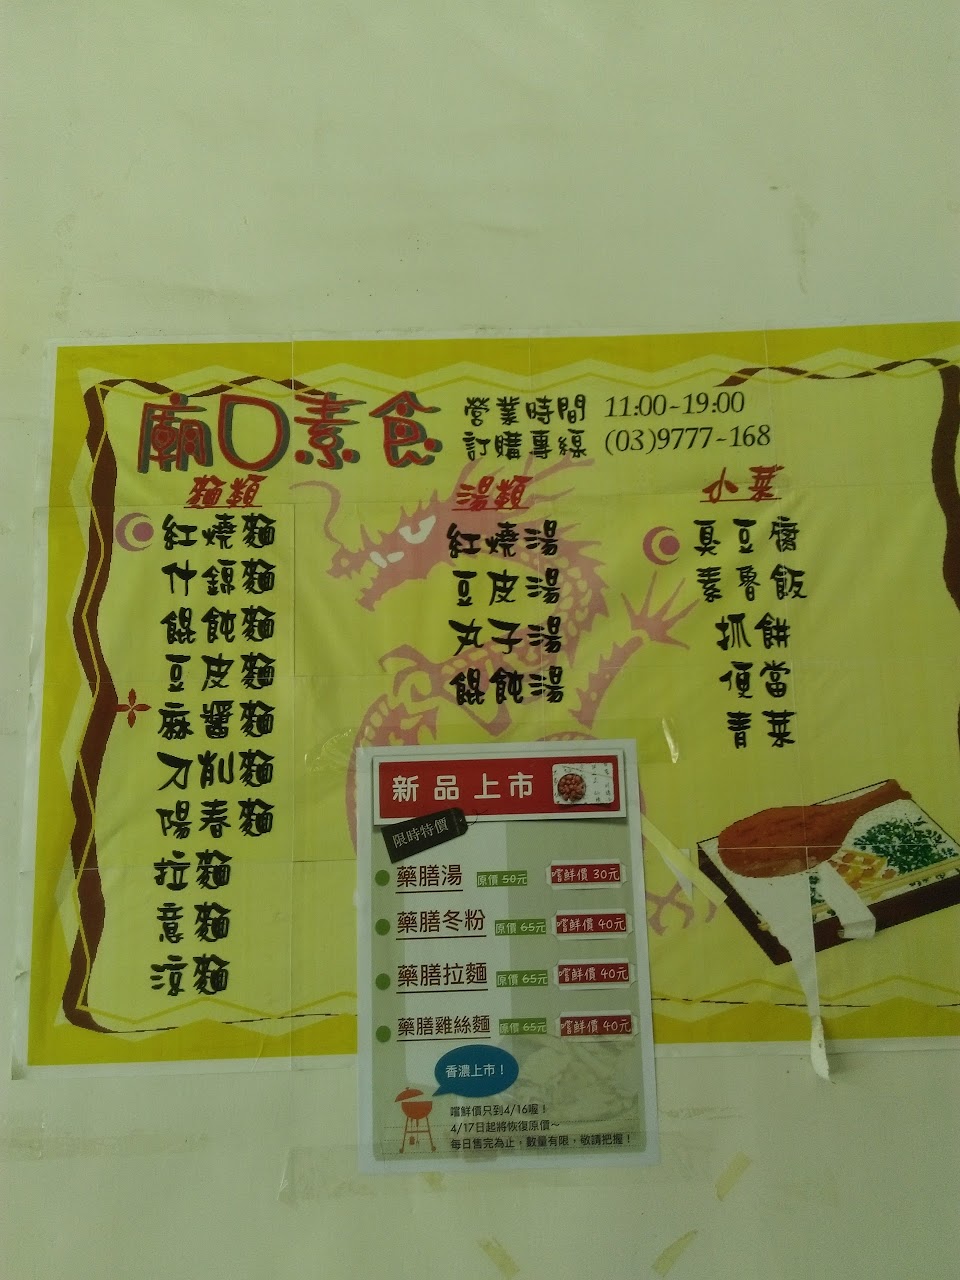 廟口素食
營業時間 11:00~19:00
訂購專線 (03)9777-168
麵類
紅燒麵
什錦麵
餛飩麵
豆皮麵
麻醬麵
刀削麵
陽春麵
拉麵
意麵
涼麵
湯類
紅燒湯
豆皮湯
丸子湯
餛飩湯
小菜
臭豆腐
素魯飯
抓餅
便當
青菜
新品上市
限時特價
藥膳湯 原價 50元 嚐鮮價 30元
藥膳冬粉 原價 65元 嚐鮮價 40元
藥膳拉麵 原價 65元 嚐鮮價 40元
藥膳雞絲麵 原價 65元 嚐鮮價 40元
香濃上市！
嚐鮮價只到4/16喔！
4/17日起將恢復原價～
每日售完為止，數量有限，敬請把握！